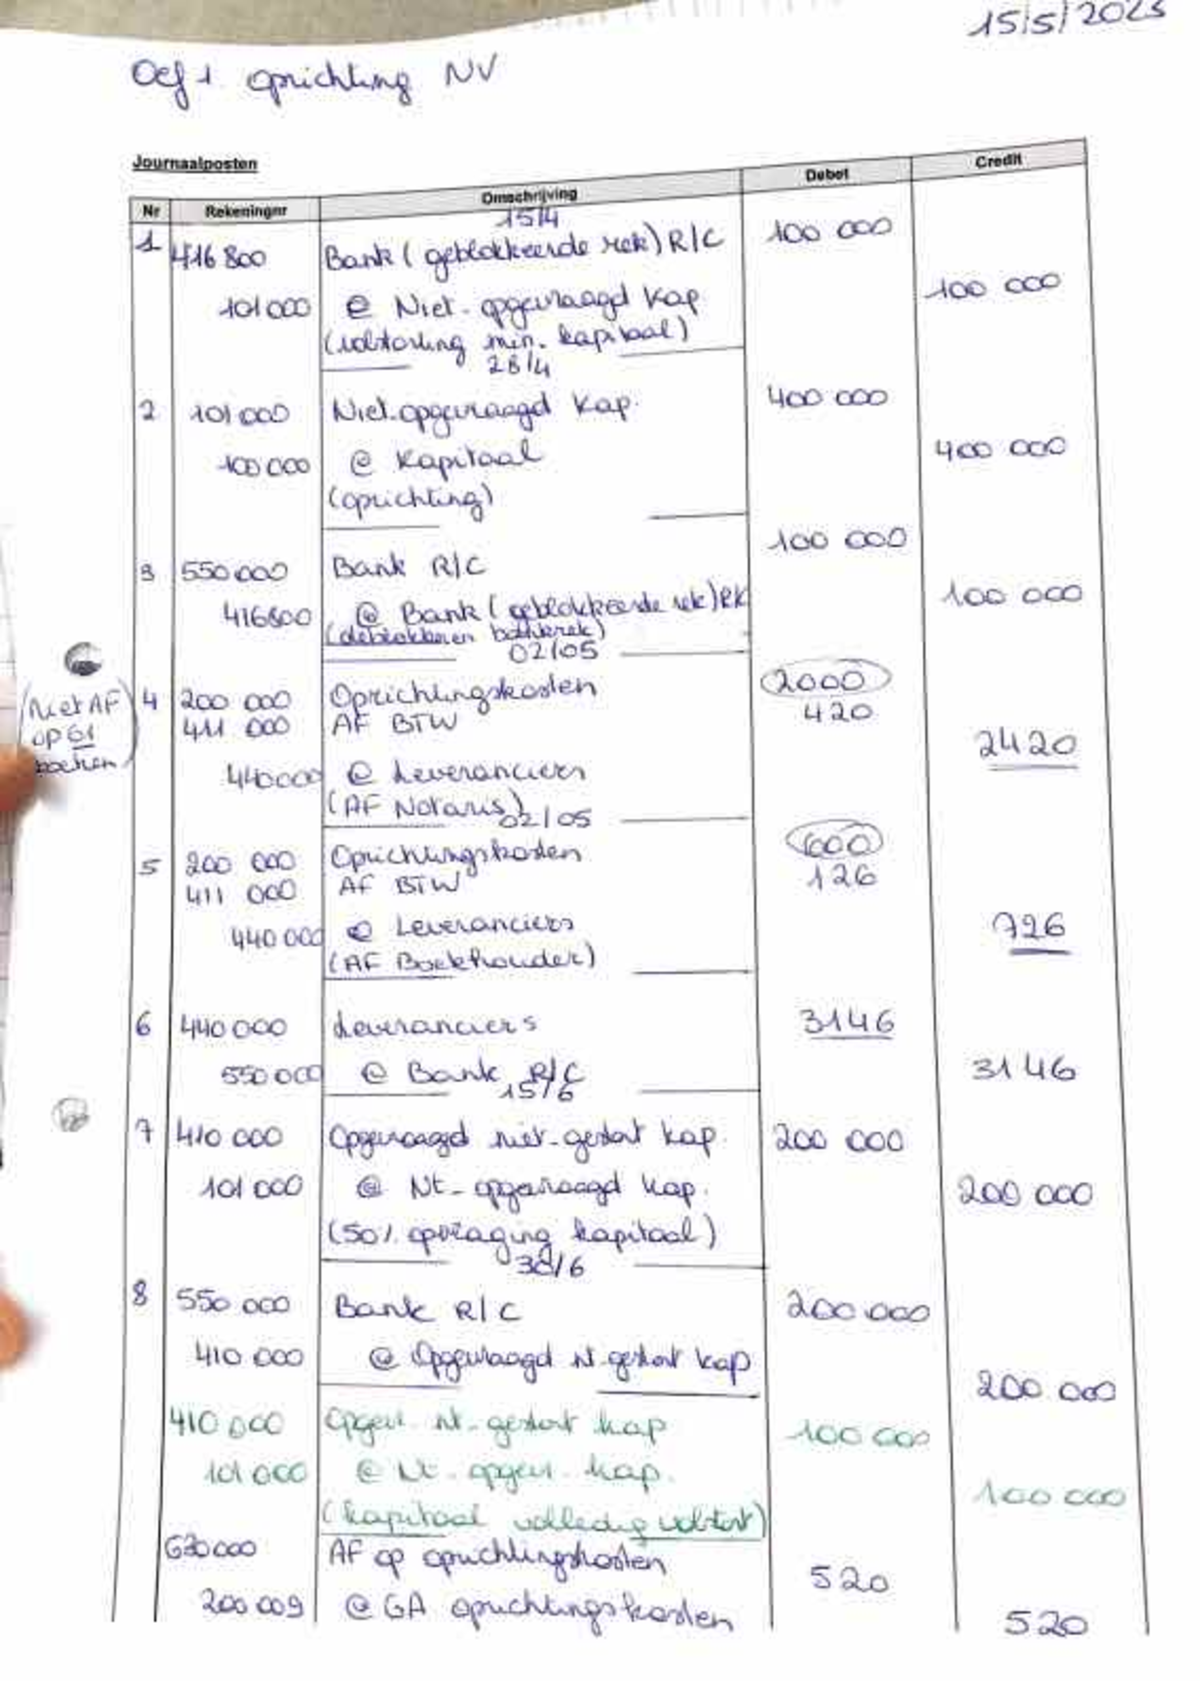 15/5/2023
Oef 1 oprichting NV
Journaalposten
Nr Rekeningnr Omschrijving Debet Credit
15/4
1 416 800 Bank (geblokkeerde rek) R/C 100 000
101 000 @ Niet-opgevraagd Kap. 100 000
(volstorting min. kapitaal)
28/4
2 101 000 Niet-opgevraagd Kap. 400 000
100 000 @ Kapitaal 400 000
(oprichting)
3 550 000 Bank R/C 100 000
416800 @ Bank (geblokkeerde rek) RK 100 000
(deblokkeren bankrek)
02/05
4 200 000 Oprichtingskosten 2000
(Niet AF op 61 boeken)
411 000 AF BTW 420
440000 @ Leveranciers 2420
(AF Notaris)
02/05
5 200 000 Oprichtingskosten 600
411 000 AF BTW 126
440 000 @ Leveranciers 726
(AF Boekhouder)
6 440 000 Leveranciers 3146
550 000 @ Bank R/C 3146
15/6
7 410 000 Opgevraagd niet-gestort kap. 200 000
101 000 @ Nt-opgevraagd kap. 200 000
(50% opvraging kapitaal)
30/6
8 550 000 Bank R/C 200 000
410 000 @ Opgevraagd nt-gestort kap 200 000
410 000 Opgev. nt-gestort kap 100 000
101 000 @ Nt-opgev. kap. 100 000
(kapitaal volledig volstort)
630000 AF op oprichtingskosten 520
200 009 @ GA oprichtingskosten 520